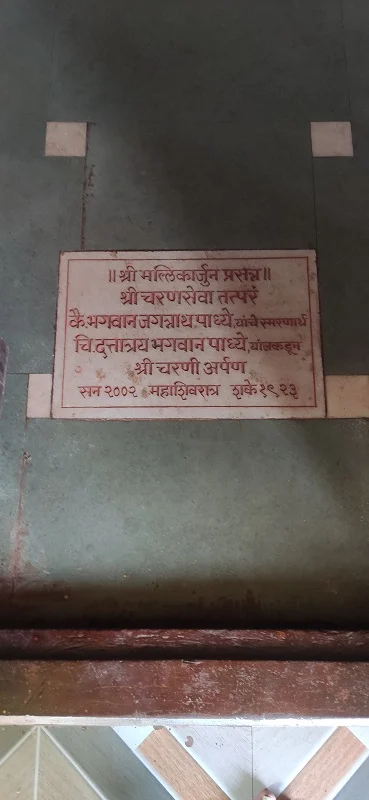 ॥ श्री मल्लिकार्जुन प्रसन्न ॥
श्री चरणसेवा तत्परं
कै. भगवान जगन्नाथ पाध्ये, यांचे स्मरणार्थ
चि. दत्तात्रय भगवान पाध्ये, यांजकडून
श्री चरणी अर्पण
सन २००२ महाशिवरात्र शके १९२३